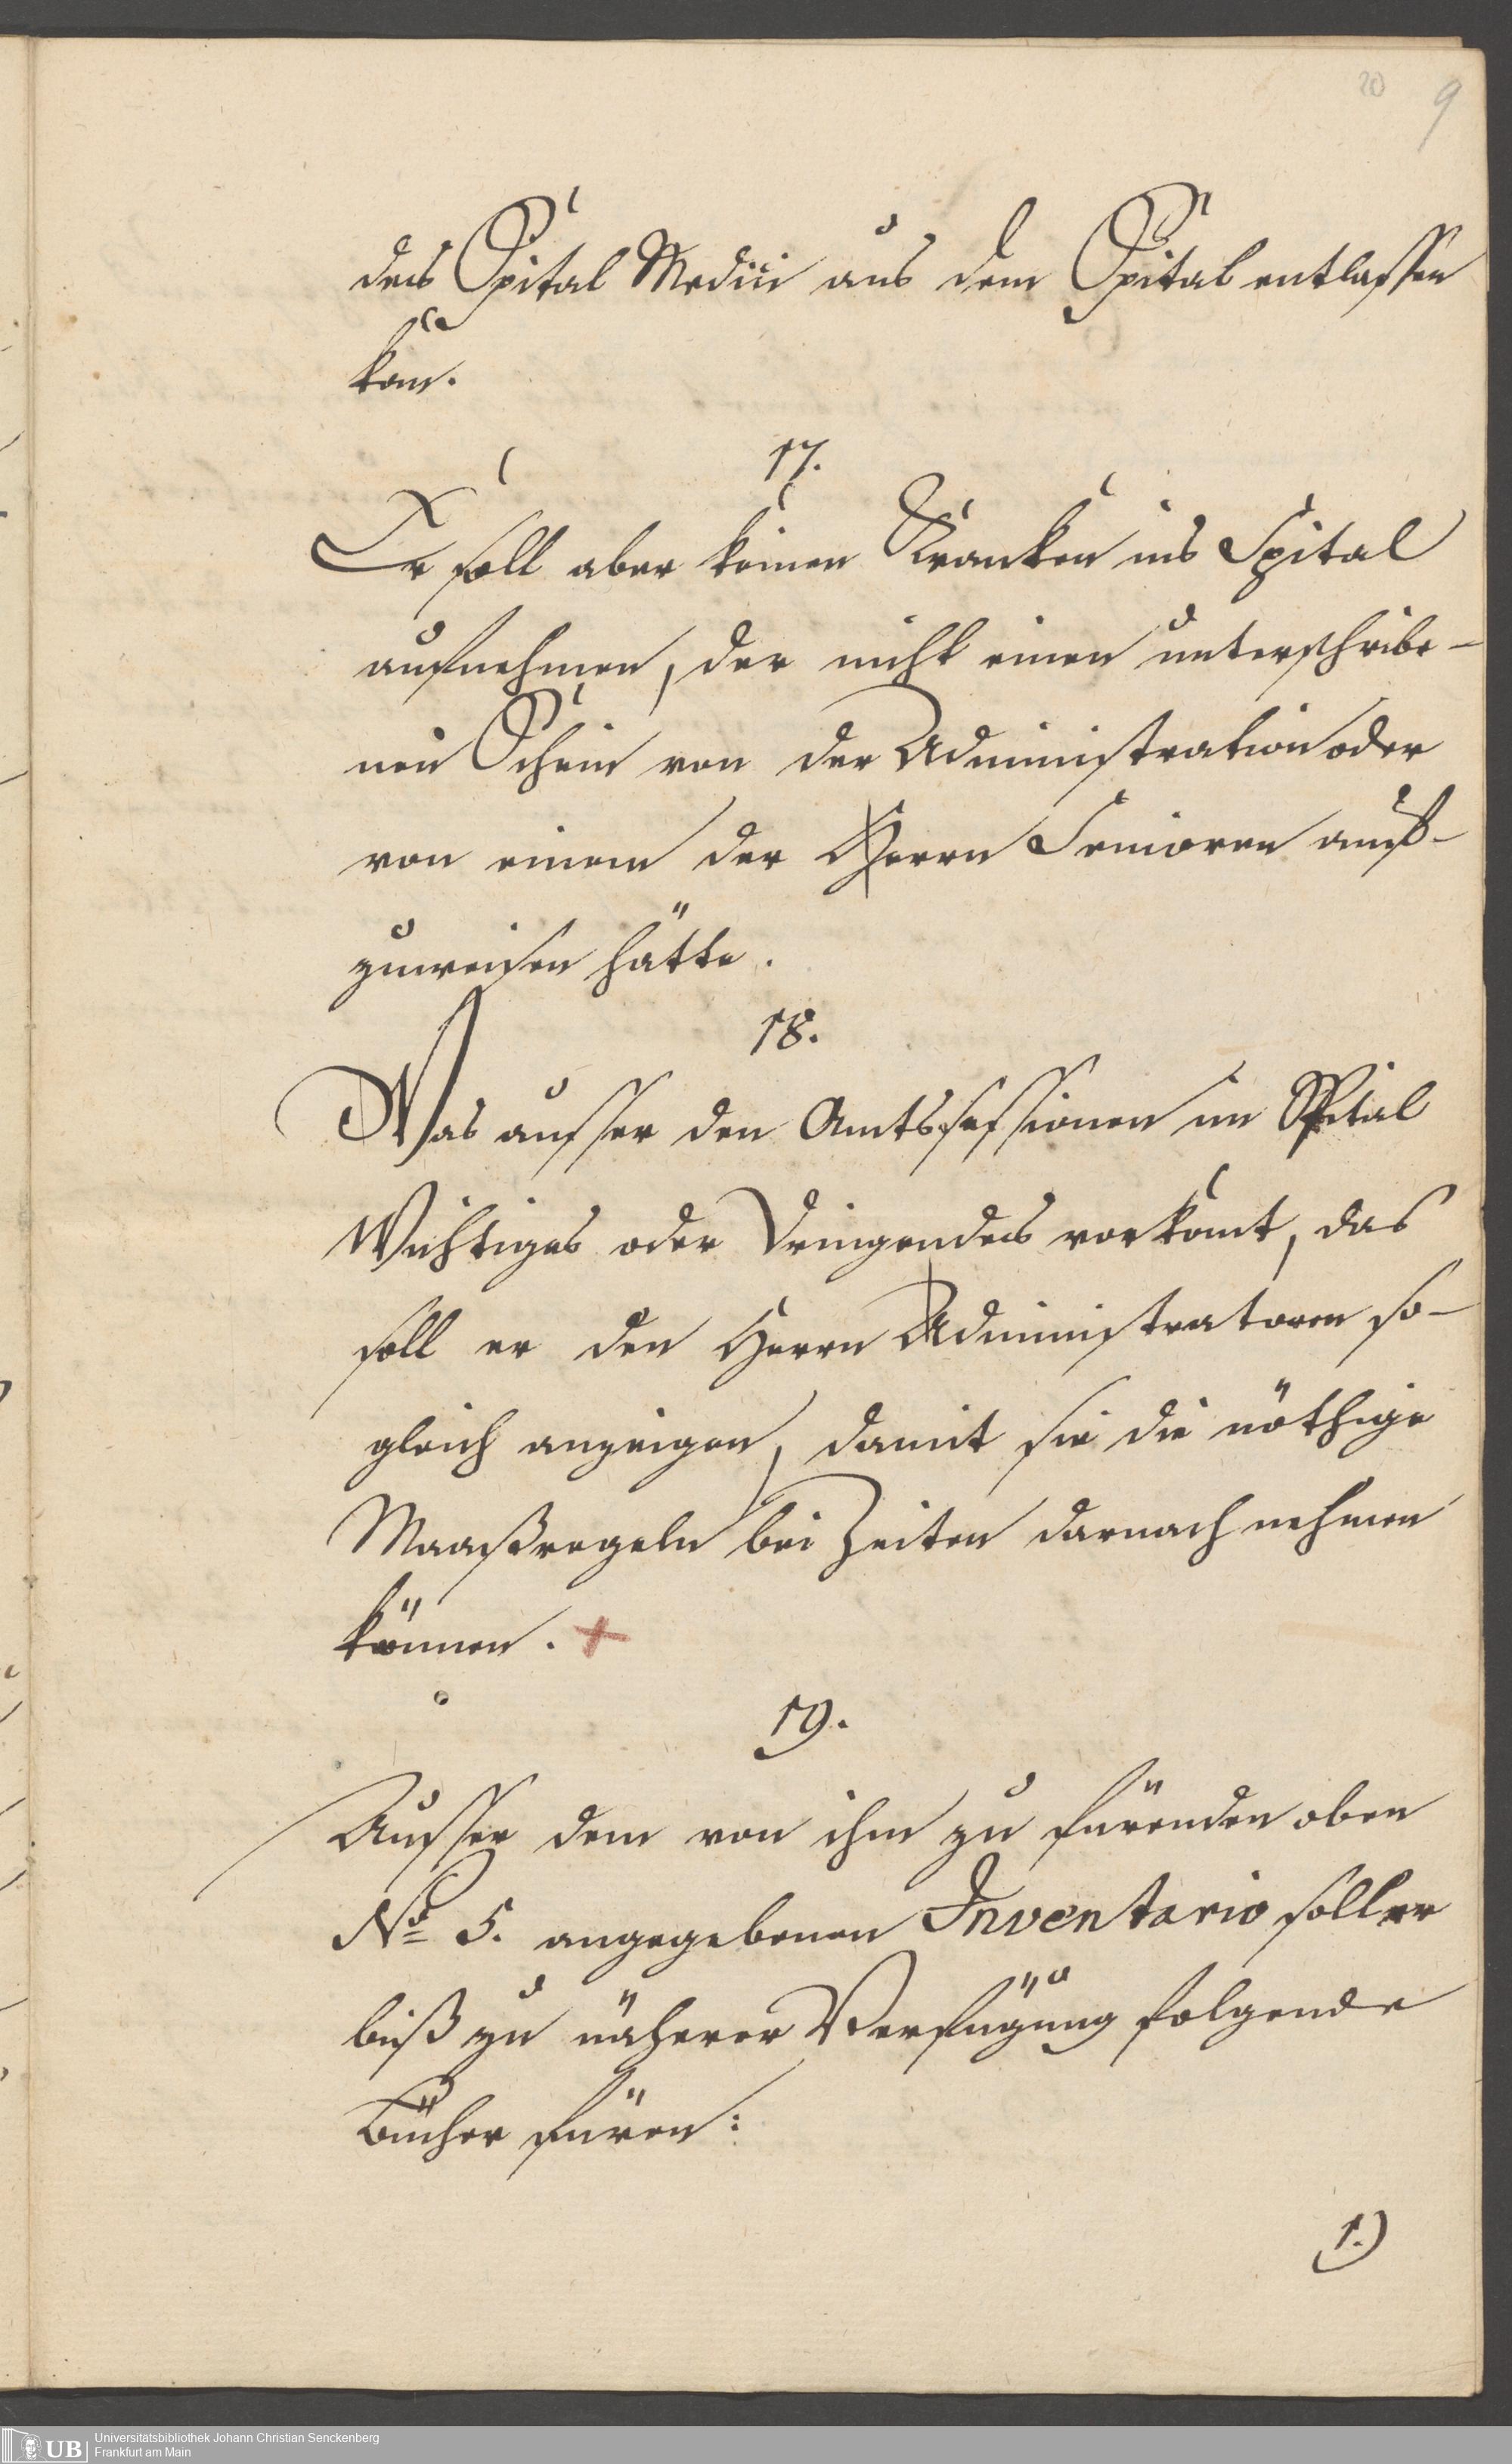 20 9
des Spital Medici aus dem Spital entlassen
kan̄.
17.
Er soll aber keinen Kranken ins Spital
aufnehmen, der nicht einen unterschribe-
nen Schein von der Administration oder
von einem der Herrn Senioren auf-
zuweisen hätte.
18.
Was ausser den Amtssessionen im Spital
Wichtiges oder Dringendes vorkom̄t, das
soll er den Herrn Administratoren so-
gleich anzeigen, damit sie die nöthige
Maaßregeln bei Zeiten darnach nehmen
können. +
19.
Ausser dem von ihm zu fürenden oben
No 5. angegebenen Inventario soll er
biß zu näherer Verfügung folgende
Bücher füren:
1.)
UB Universitätsbibliothek Johann Christian Senckenberg
Frankfurt am Main